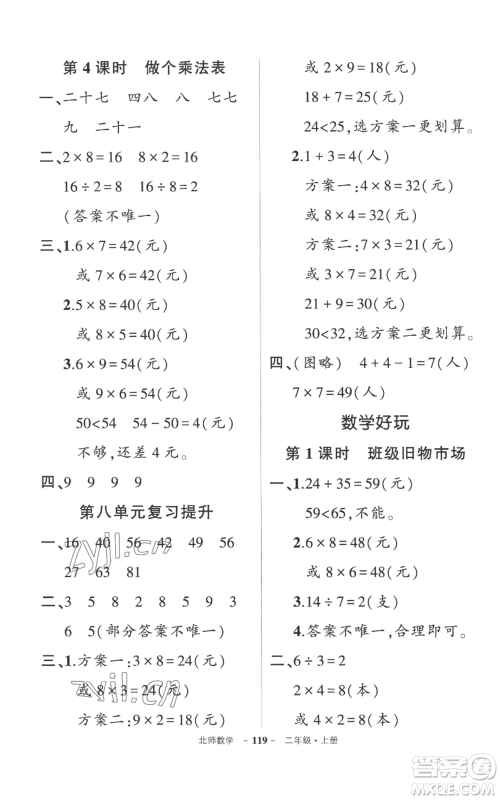 第4课时 做个乘法表
一、二十七 四八 八 七七
九 二十一
二、2×8=16 8×2=16
16÷2=8 16÷8=2
(答案不唯一)
三、1.6×7=42(元)
或7×6=42(元)
2.5×8=40(元)
或8×5=40(元)
3.6×9=54(元)
或9×6=54(元)
50<54 54-50=4(元)
不够,还差4元。
四、9 9 9 9
第八单元复习提升
一、16 40 56 54 49 56
27 63 81
二、3 5 8 2 8 5 9 3
6 5(部分答案不唯一)
三、1.方案一:3×8=24(元)
或8×3=24(元)
方案二:9×2=18(元)
或2×9=18(元)
18+7=25(元)
24<25,选方案一更划算。
2.1+3=4(人)
方案一:4×8=32(元)
或8×4=32(元)
方案二:7×3=21(元)
或3×7=21(元)
21+9=30(元)
30<32,选方案二更划算。
四、(图略) 4+4-1=7(人)
7×7=49(人)
数学好玩
第1课时 班级旧物市场
一、1.24+35=59(元)
59<65,不能。
2.6×8=48(元)
或8×6=48(元)
3.14÷7=2(支)
4.答案不唯一,合理即可。
二、6÷3=2
2×4=8(本)
或4×2=8(本)
北师数学 -119- 二年级·上册
zyjl.cn
zyjl.cn
答案圈